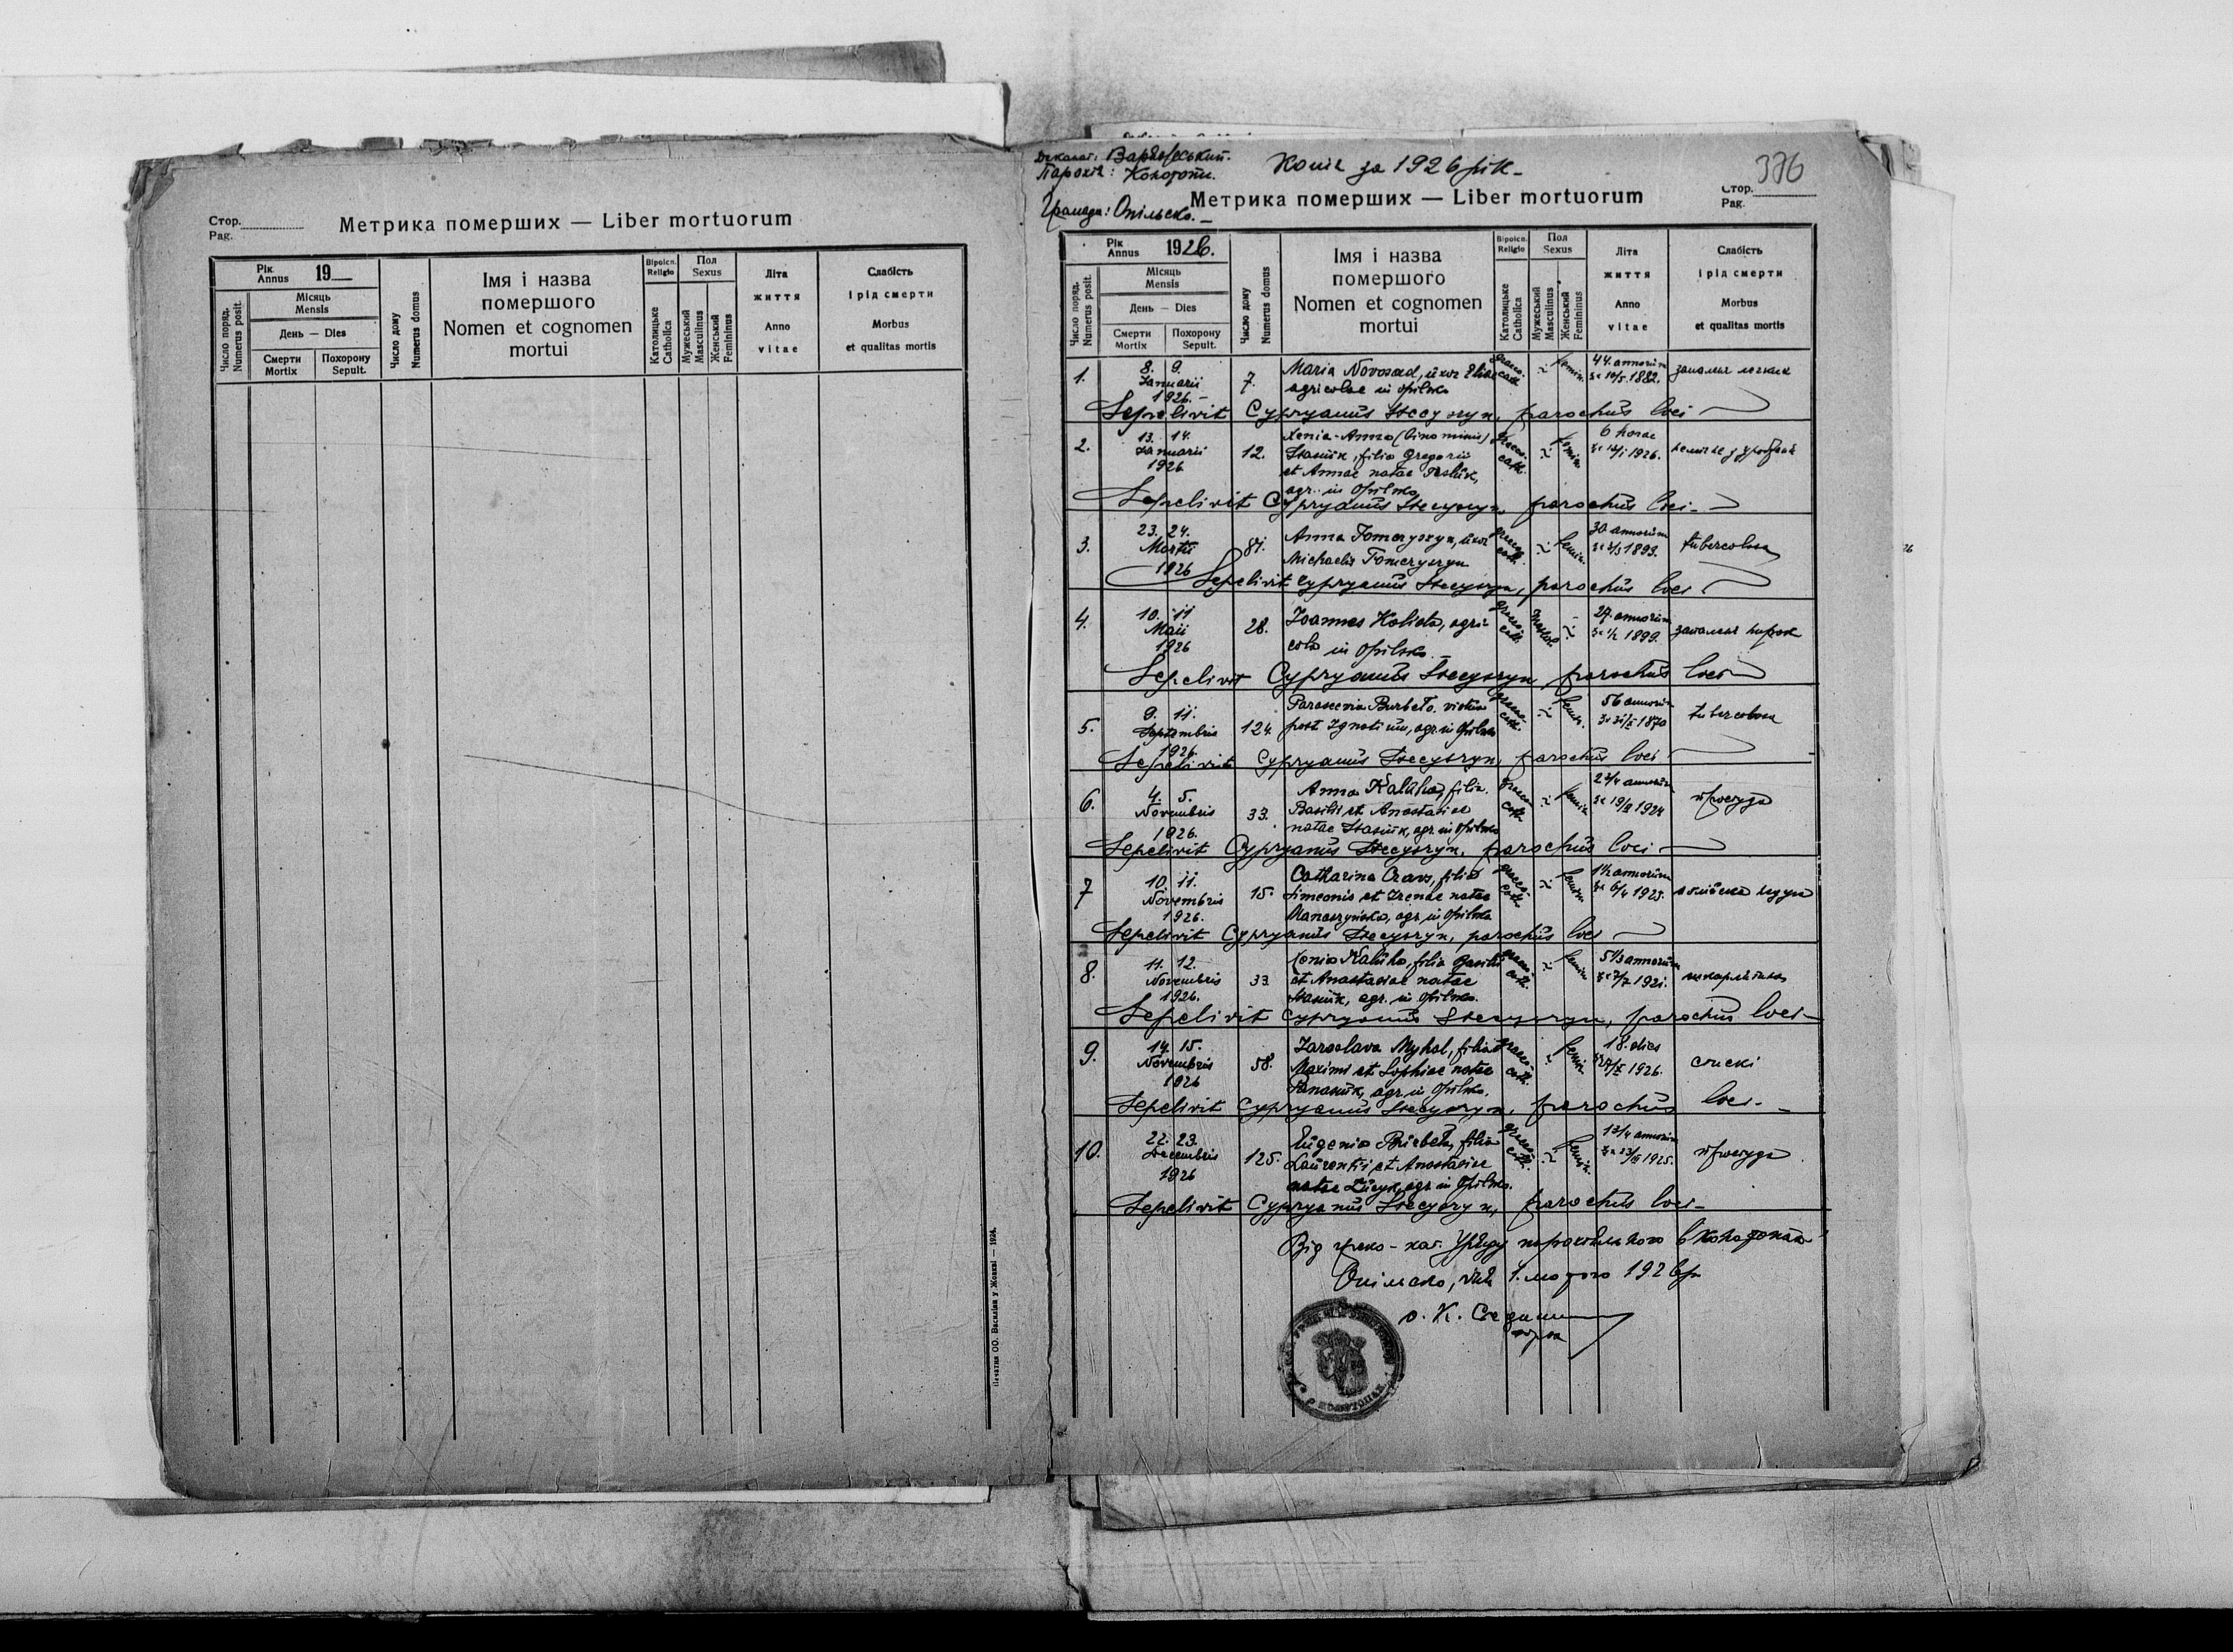 Стор.
Pag.
Метрика померших — Liber mortuorum
Рік
Annus 19
Місяць
Mensis
День — Dies
Смерти
Mortix
Похорону
Sepult.
Число поряд.
Numerus posit.
Число дому
Numerus domus
Імя і назва
помершого
Nomen et cognomen
mortui
Віроісп.
Religio
Католицьке
Catholica
Пол
Sexus
Мужеський
Masculinus
Женський
Femininus
Літа
життя
Anno
vitae
Слабість
і рід смерти
Morbus
et qualitas mortis
Печатня ОО. Василіян у Жовкві — 1924.
Деканат:
Парохія: Конотопи.
Громада: Опільсько.
Копія за 1926 рік
376
Метрика померших — Liber mortuorum
Стор.
Pag.
Рік
Annus 1926.
Місяць
Mensis
День — Dies
Смерти
Mortix
Похорону
Sepult.
Число поряд.
Numerus posit.
Число дому
Numerus domus
Імя і назва
помершого
Nomen et cognomen
mortui
Віроісп.
Religio
Католицьке
Catholica
Пол
Sexus
Мужеський
Masculinus
Женський
Femininus
Літа
життя
Anno
vitae
Слабість
і рід смерти
Morbus
et qualitas mortis
1. 8. 9. Januarii 1926. 7. Maria Novosad, uxor Eliae
agricolae in Opilsko
graeco-cath. femin. 44. annorum 1882.
Sepelivit Cypryanus Stecyszyn, parochus loci
2. 13. 14. Januarii 1926 12. Xenia-Anna (binominis)
Stasiuk, filia Gregorii
et Annae natae
agr. in Opilsko
graeco-cath. femin. 6 horae 1926.
Sepelivit Cypryanus Stecyszyn, parochus loci
3. 23. 24. Martii 1926 81. Anna Tomczyszyn, uxor
Michaelis Tomczyszyn
graeco-cath. femin. 30 annorum 1899. tubercolosa
Sepelivit Cypryanus Stecyszyn, parochus loci
4. 10. 11 Maii 1926 28. Joannes Kohido, agri-
cola in Opilsko
graeco-cath. mascul. 27. annorum 1899.
Sepelivit Cypryanus Stecyszyn parochus loci
5. 9. 11. Septembris 1926. 124. Parascevia Burbeło, vidua
post Ignatium, agr. in Opilsko
graeco-cath. femin. 56 annorum 1870 tubercolosa
Sepelivit Cypryanus Stecyszyn, parochus loci
6. 4. 5. Novembris 1926. 33. Anna Kaluha, filia
Basilii et Anastasiae
natae Stasiuk, agr. in Opilsko
graeco-cath. femin. 2 3/4 annorum 1924
Sepelivit Cypryanus Stecyszyn, parochus loci
7 10. 11. Novembris 1926. 15. Catharina Oraws, filia
Simeonis et Irenae natae
agr. in Opilsko
graeco-cath. femin. 1½ annorum 1925.
Sepelivit Cypryanus Stecyszyn, parochus loci
8. 11. 12. Novembris 1926. 33 Xenia Kaluha, filia Basilii
et Anastasiae natae
Stasiuk, agr. in Opilsko.
graeco-cath. femin. 5 1/3 annorum 1921. шкарлятина
Sepelivit Cypryanus Stecyszyn, parochus loci
9. 14. 15. Novembris 1926 58. Jaroslava Myhal, filia
Maximi et Sophiae natae
Panasiuk, agr. in Opilsko.
graeco-cath. femin. 18. dies 1926.
Sepelivit Cypryanus Stecyszyn, parochus loci
10. 22. 23. Decembris 1926 125. Eugenia filia
Laurentii et Anastasiae
natae agr. in Opilsko.
graeco-cath. femin. 1 3/4 annorum 1925.
Sepelivit Cypryanus Stecyszyn, parochus loci
Від греко-кат. Уряду парохіяльного в Конотопах
Опілсько, дня 1. лютого 1926 р.
о. К.